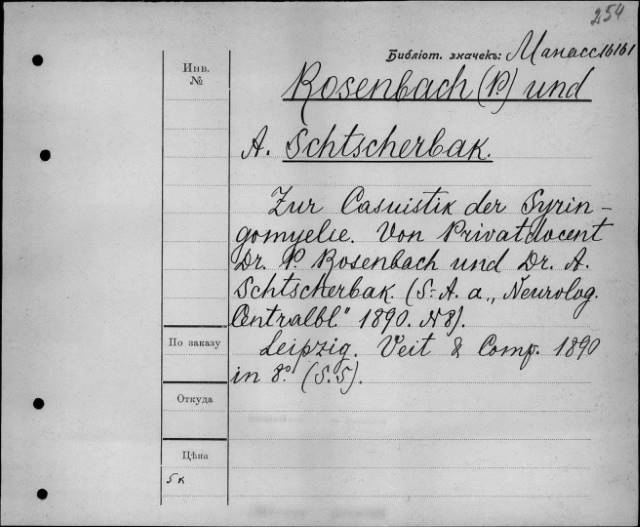 254
Библіот. значекъ: Манасс 16161
Инв.
№
Rosenbach (P.) und
A. Schtscherbak.
Zur Casuistik der Syrin-
gomyelie. Von Privatdocent
Dr. P. Rosenbach und Dr. A.
Schtscherbak. (S.-A. a. „Neurolog.
Centralbl" 1890. N8).
По заказу
Leipzig. Veit & Comp. 1890
in 8º. (S.5).
Откуда
Цѣна
5к